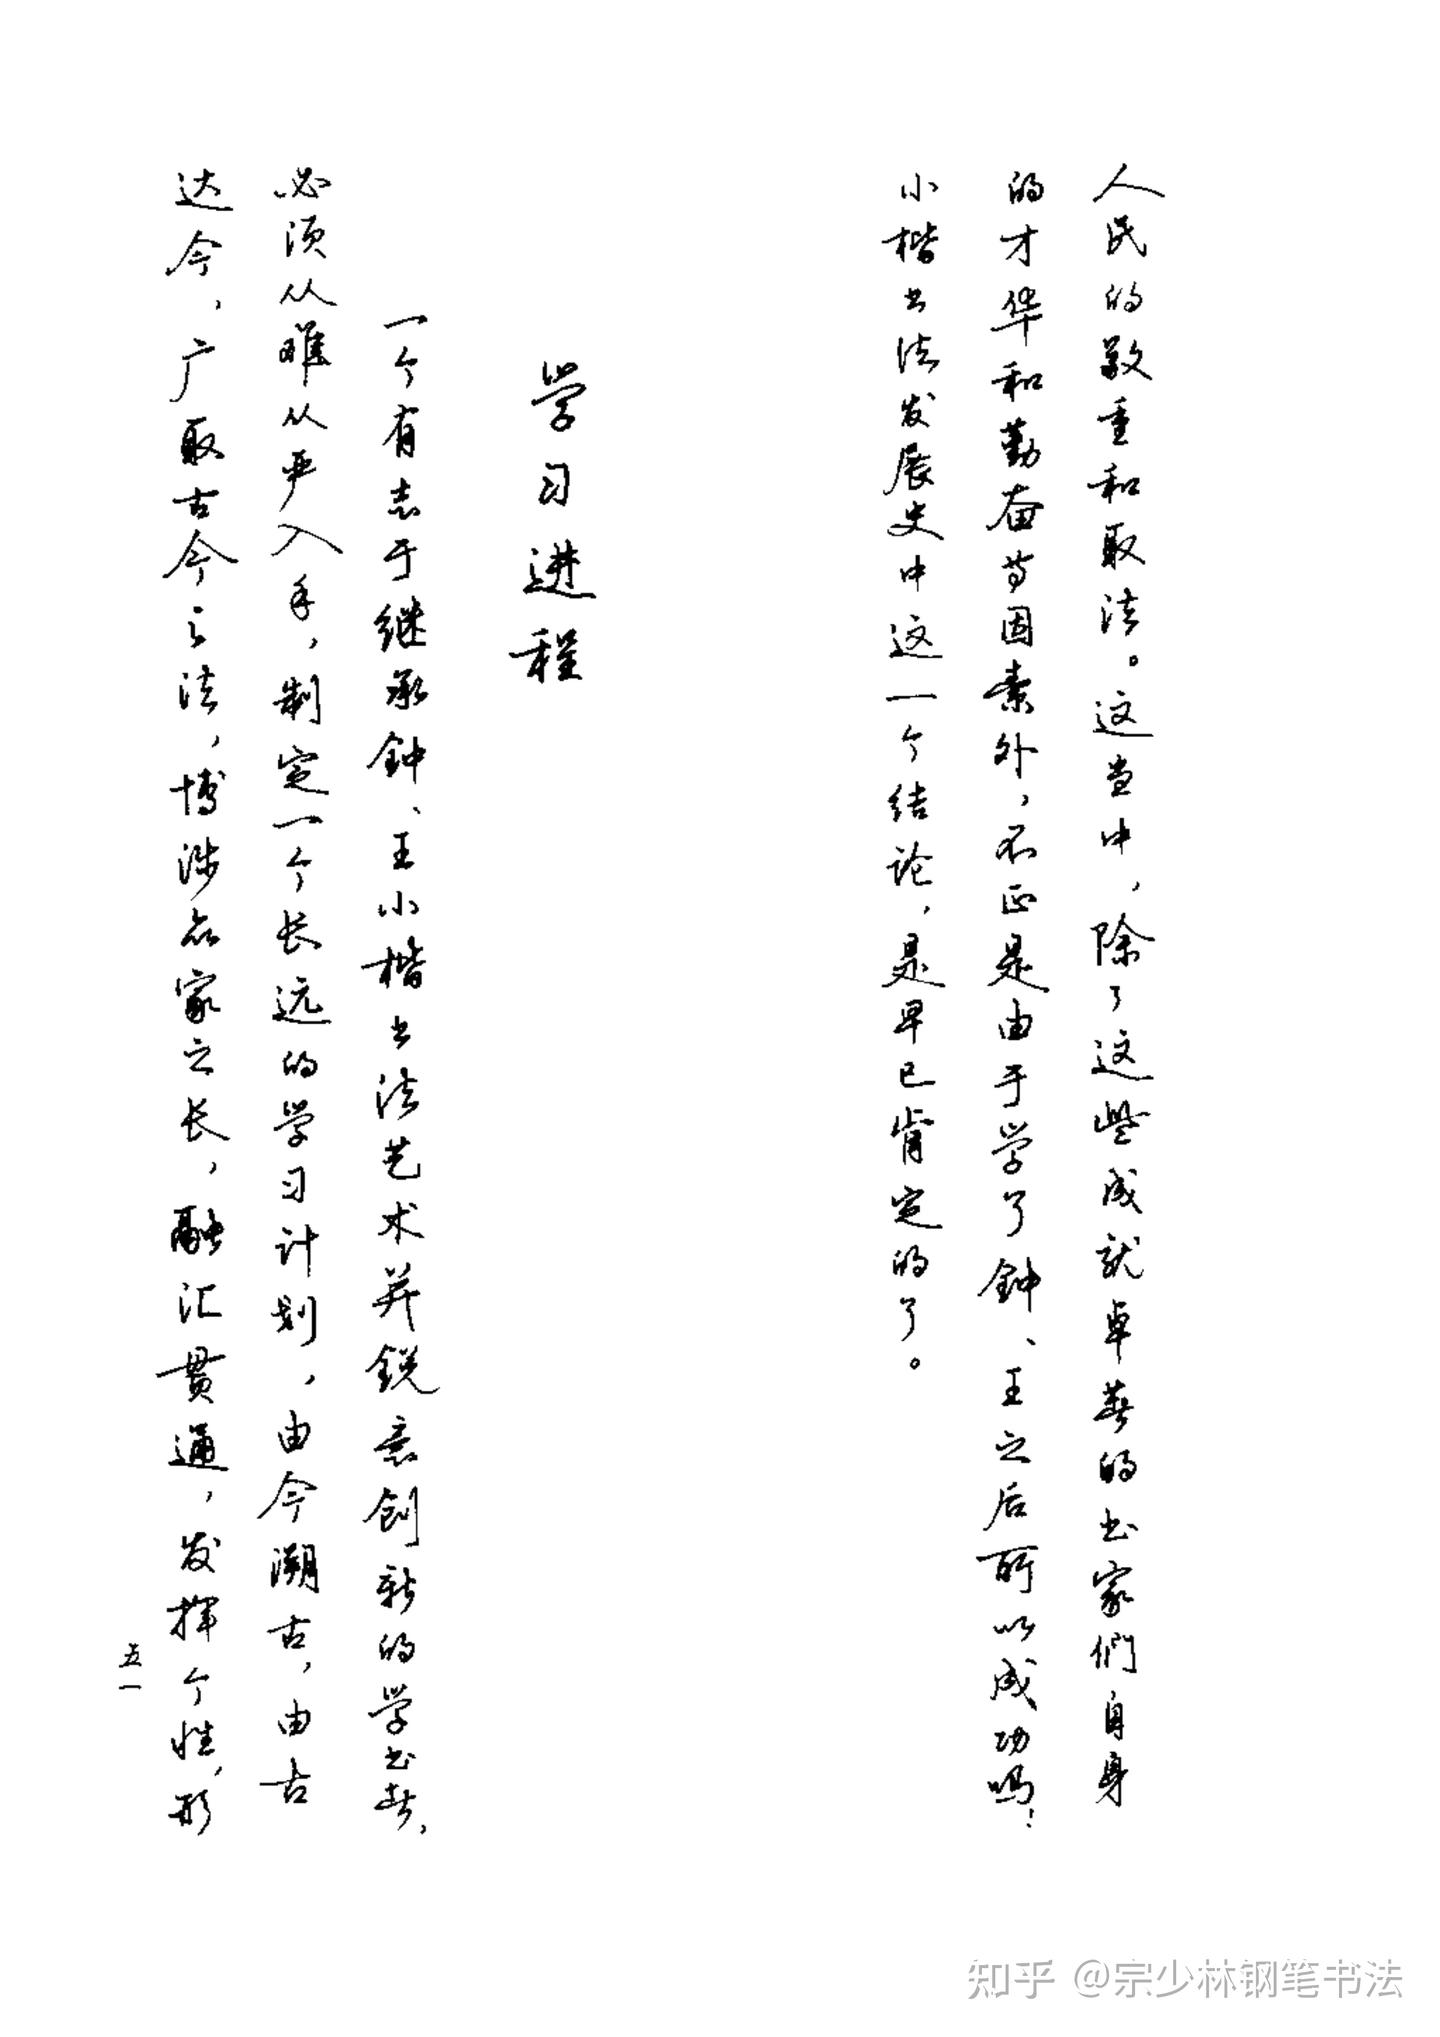 人民的敬重和取法。这当中，除了这些成就卓著的书家們自身
的才华和勤奋等因素外，不正是由于学了钟、王之后所以成功嗎！
小楷书法发展史中这一个结论，是早已肯定的了。
学习进程
一个有志于继承钟、王小楷书法艺术并锐意创新的学书者，
必须从难从严入手，制定一个长远的学习计划，由今溯古，由古
达今，广取古今之法，博涉众家之长，融汇贯通，发挥个性，形
五一
知乎 @宗少林钢笔书法